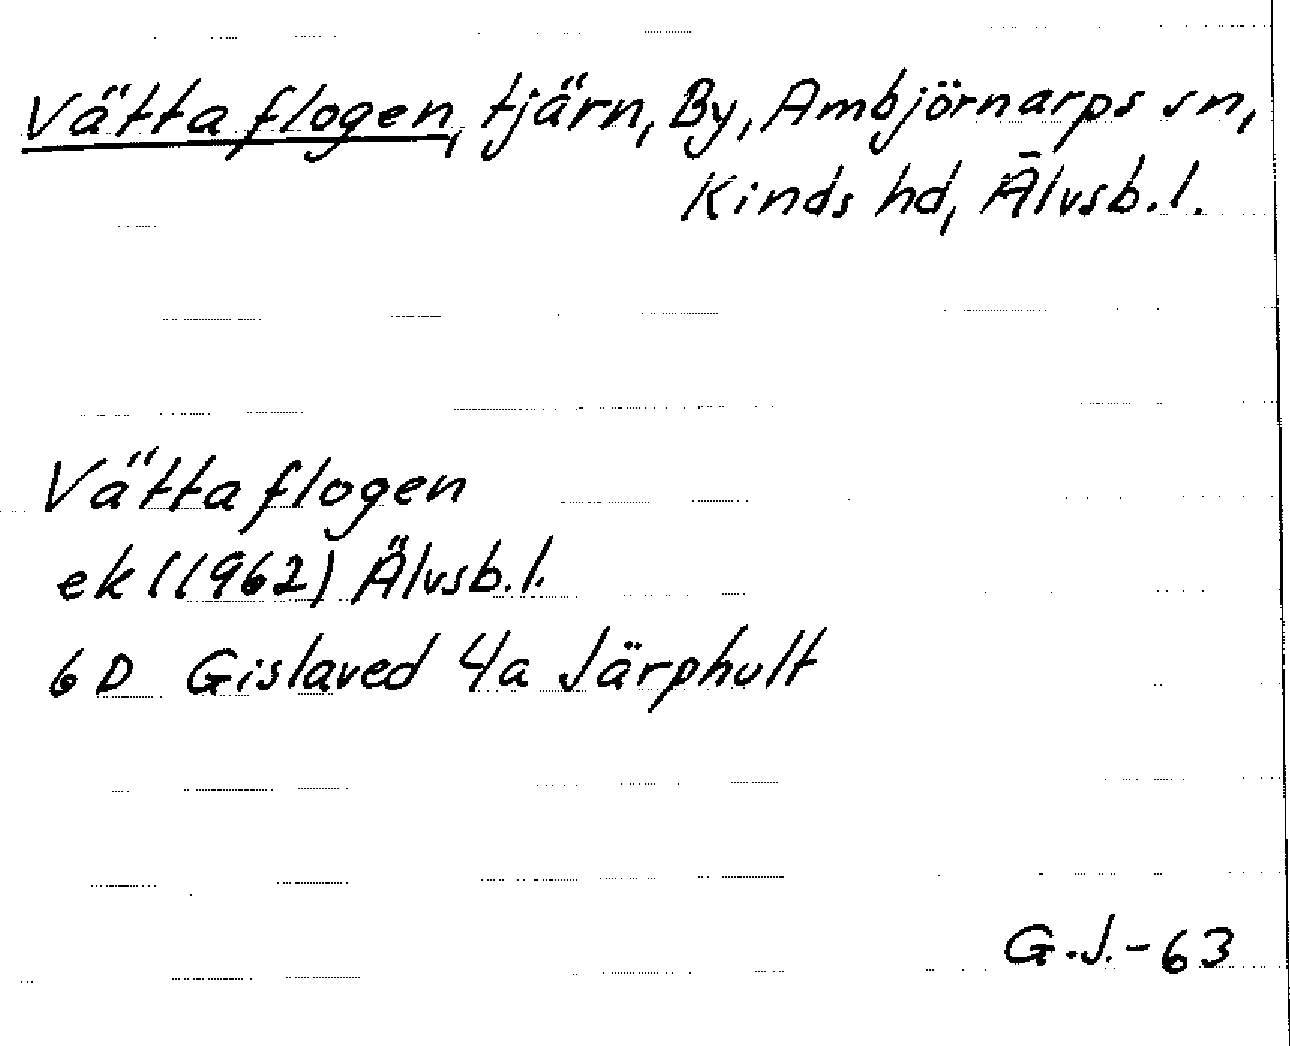 Vättaflogen, tjärn, By, Ambjörnarps sn,
Kinds hd, Älvsb.l.
Vättaflogen
ek (1962) Älvsb.l.
6D Gislaved 4a Järphult
G.J.-63